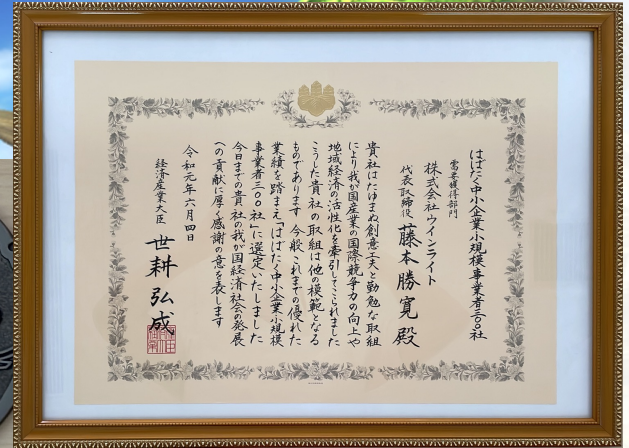 はばたく中小企業小規模事業者三〇〇社
需要獲得部門
株式会社ウインライト
代表取締役 藤本勝寛殿
貴社はたゆまぬ創意工夫と勤勉な取組
により我が国産業の国際競争力の向上や
地域経済の活性化を牽引してこられました
こうした貴社の取組は他の模範となる
ものであります 今般これまでの優れた
業績を踏まえ「はばたく中小企業小規模
事業者三〇〇社」に選定いたしました
今日までの貴社の我が国経済社会の発展
への貢献に厚く感謝の意を表します
令和元年六月四日
経済産業大臣 世耕弘成